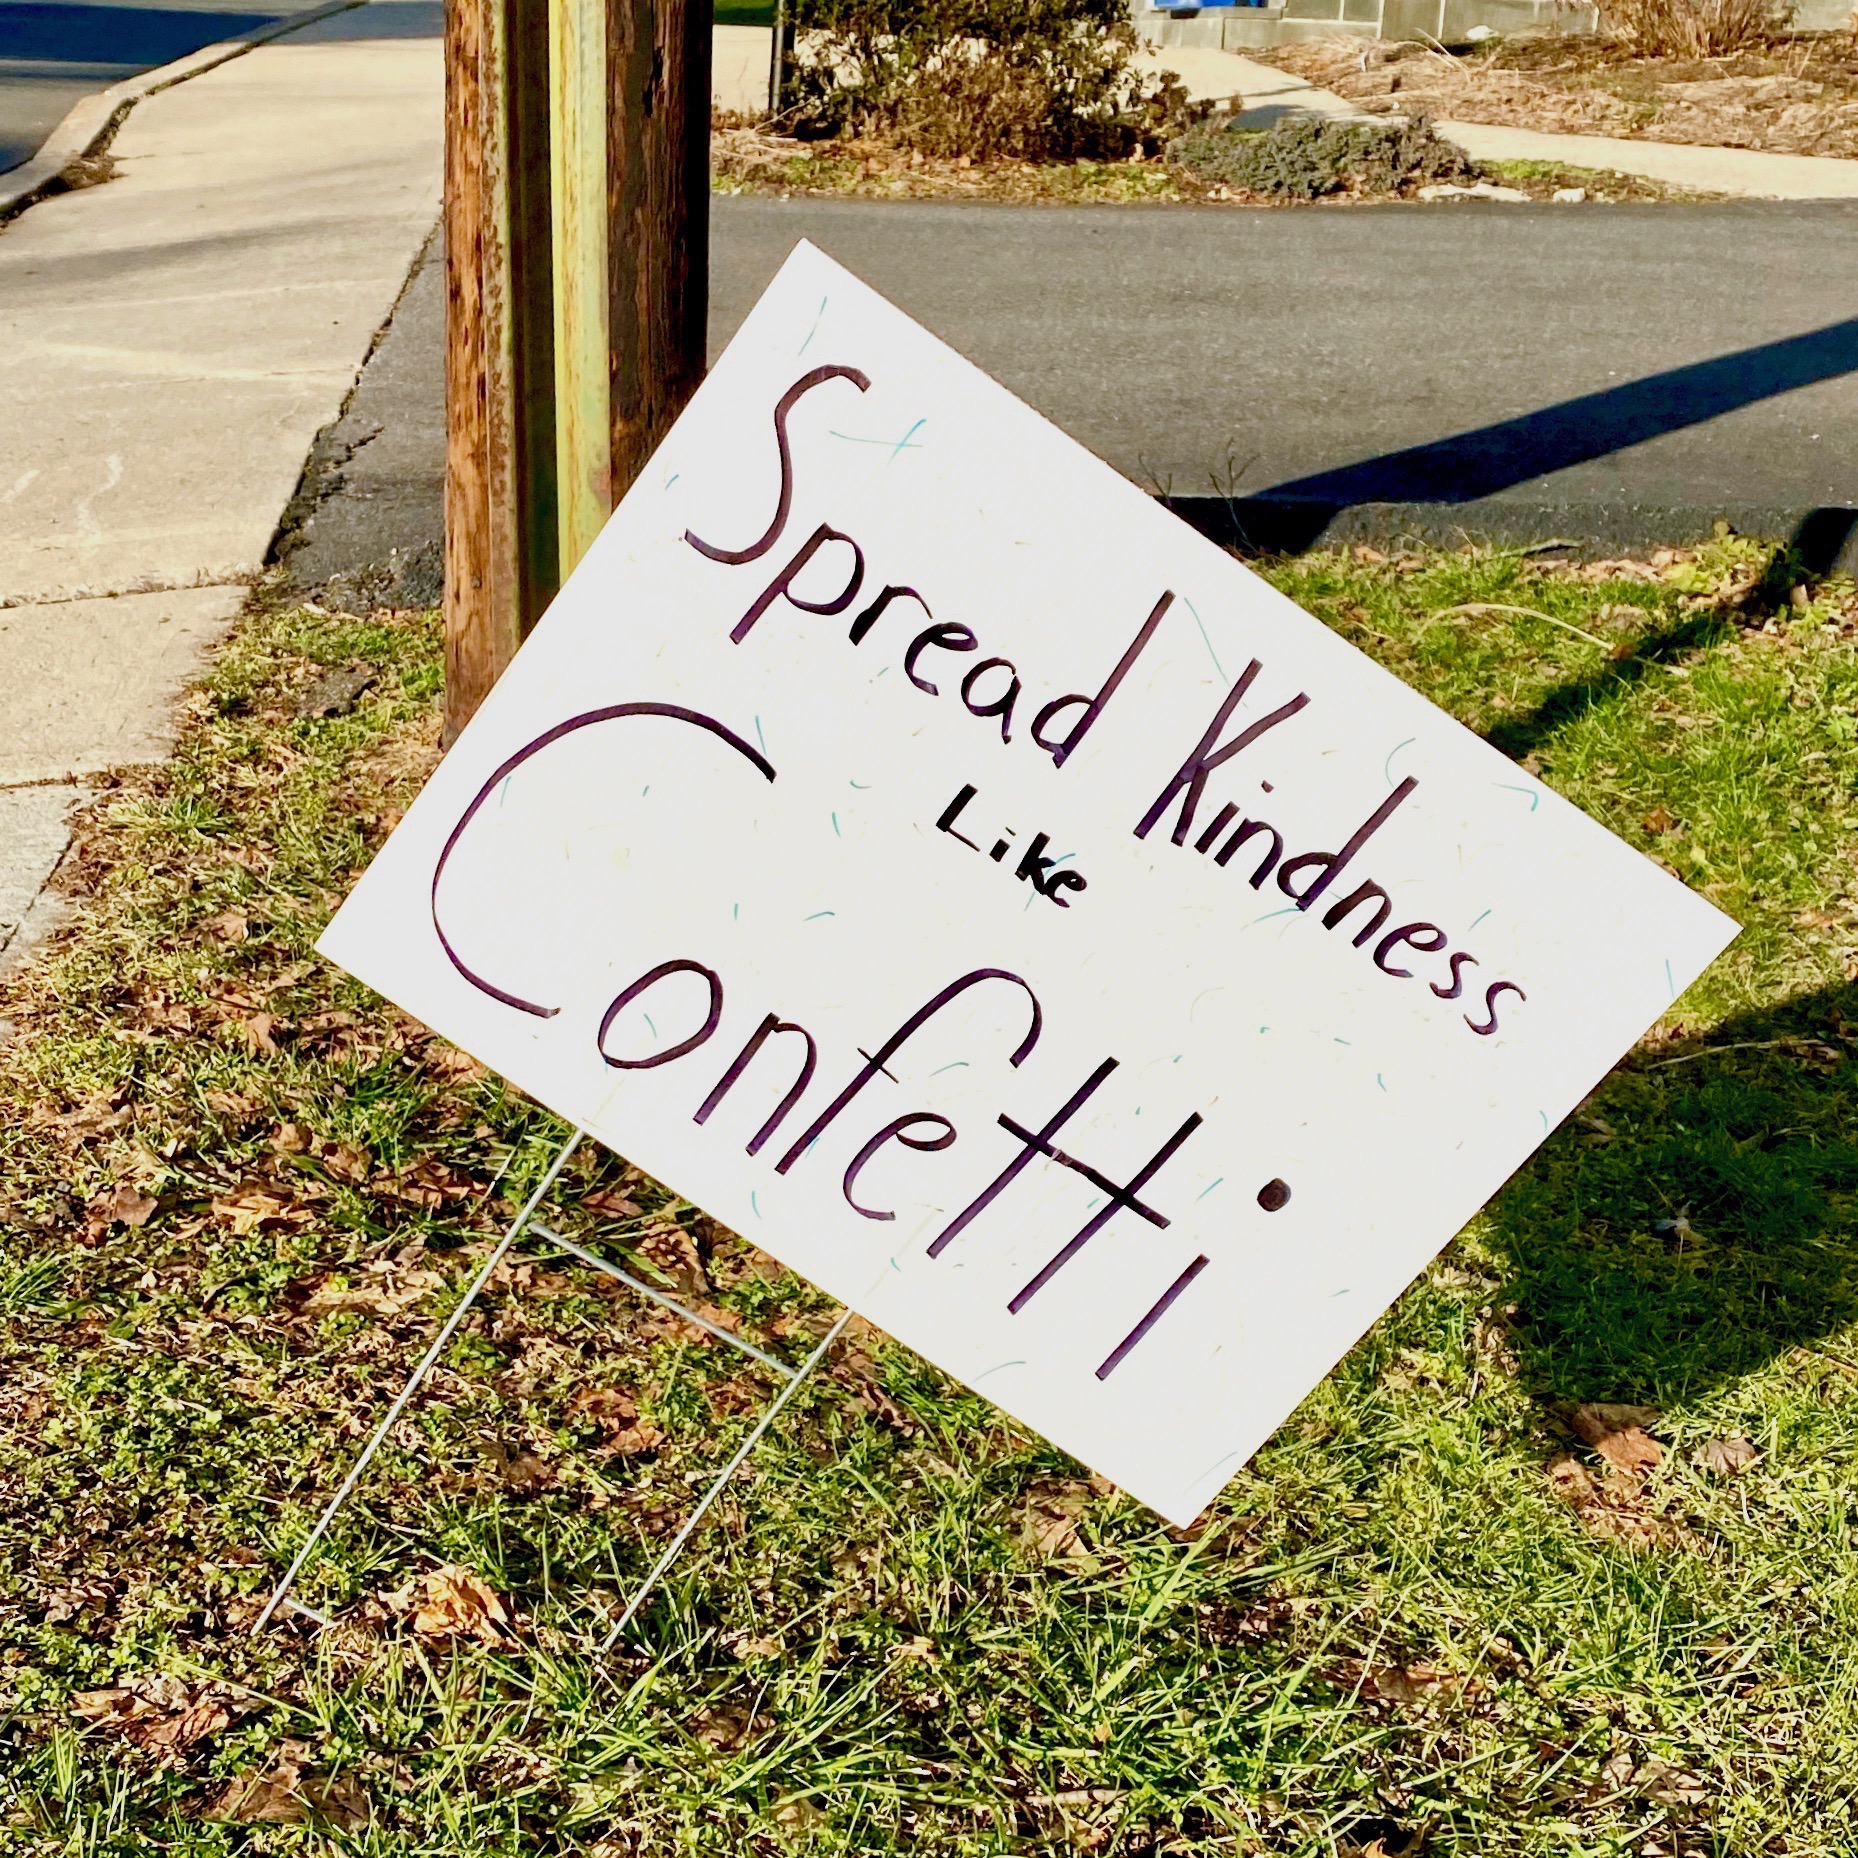 Spread Kindness
Like
Confetti